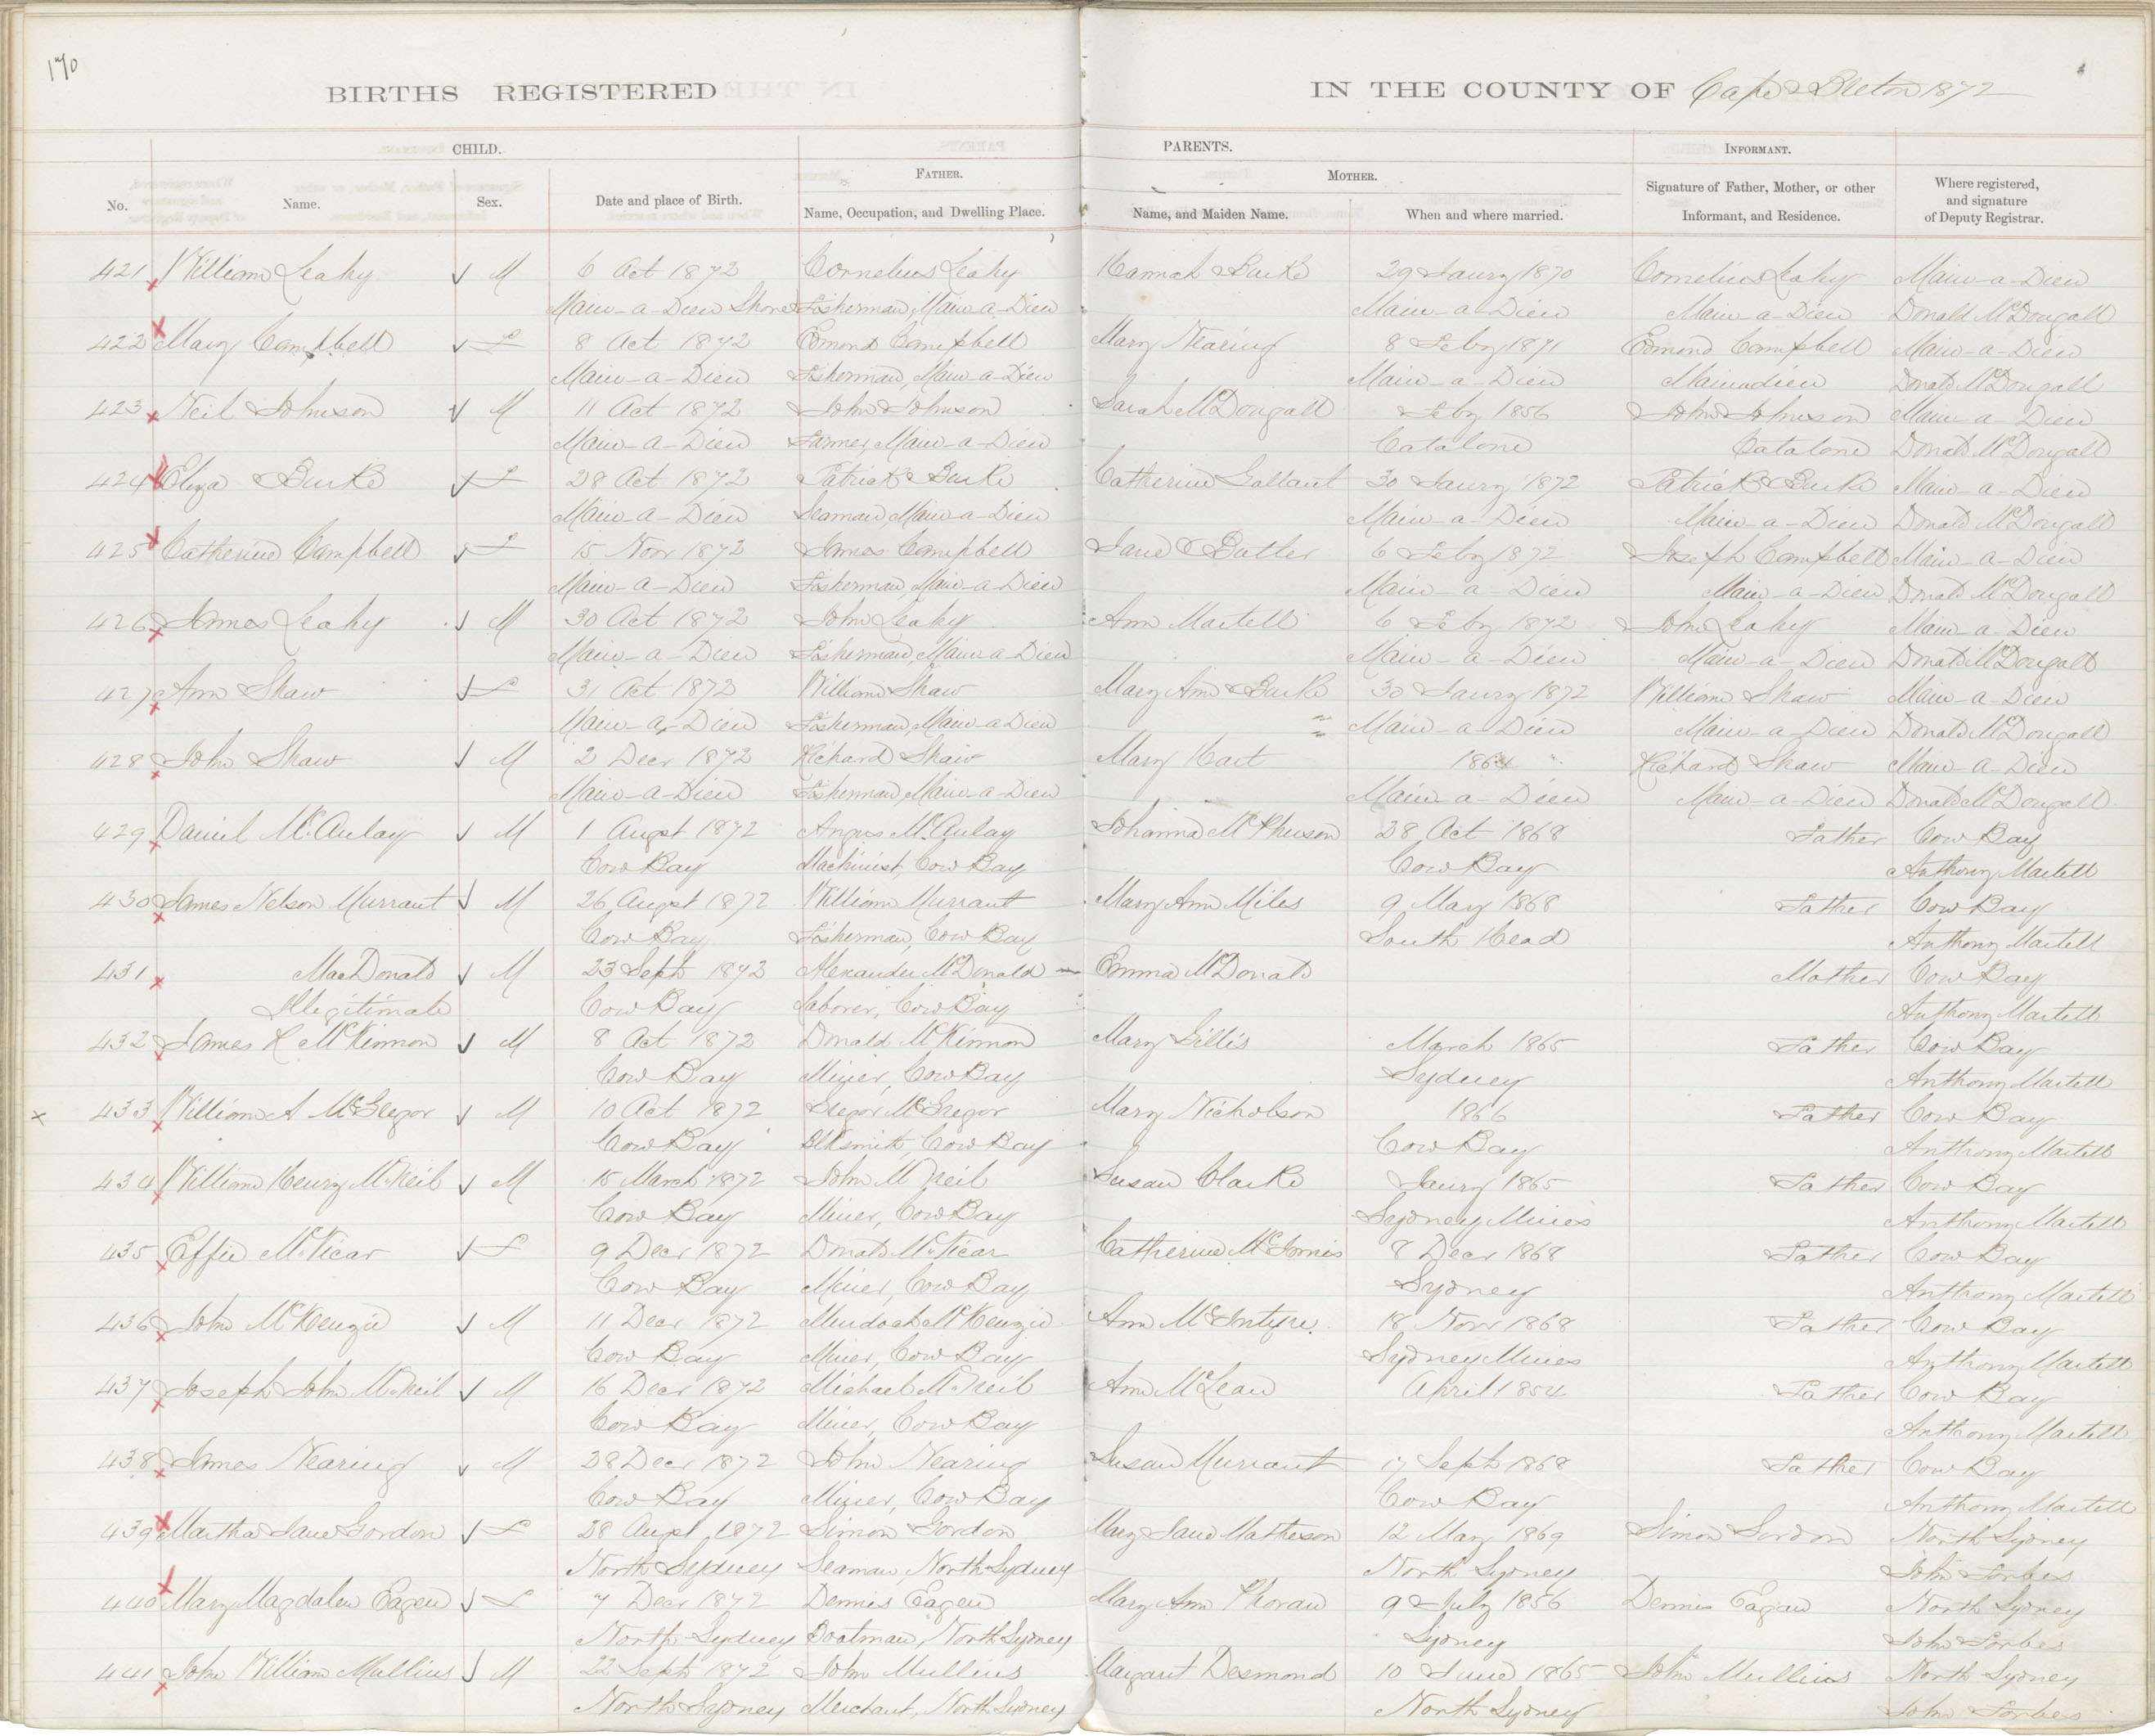 170
BIRTHS REGISTERED IN THE COUNTY OF Cape Breton 1872
CHILD. PARENTS. INFORMANT.
FATHER. MOTHER.
No. Name. Sex. Date and place of Birth. Name, Occupation, and Dwelling Place. Name, and Maiden Name. When and where married. Signature of Father, Mother, or other Informant, and Residence. Where registered, and signature of Deputy Registrar.
421 William Leahy M 6 Oct 1872 Cornelius Leahy Hannah Burke 29 Jaury 1870 Cornelius Leahy Main-a-Dieu
Main-a-Dieu Shore Fisherman, Main-a-Dieu Main-a-Dieu Main-a-Dieu Donald McDougall
422 Mary Campbell F 8 Oct 1872 Edmond Campbell Mary Nearing 8 Feby 1871 Edmond Campbell Main-a-Dieu
Main-a-Dieu Fisherman, Main-a-Dieu Main-a-Dieu Mainadieu Donald McDougall
423 Neil Johnson M 11 Oct 1872 John Johnson Sarah McDougall Feby 1856 John Johnson Main-a-Dieu
Main-a-Dieu Farmer, Main-a-Dieu Catalone Catalone Donald McDougall
424 Eliza Burke F 28 Oct 1872 Patrick Burke Catherine Gallant 30 Jaury 1872 Patrick Burke Main-a-Dieu
Main-a-Dieu Seaman, Main-a-Dieu Main-a-Dieu Main-a-Dieu Donald McDougall
425 Catherine Campbell F 15 Novr 1872 James Campbell Jane Butler 6 Feby 1872 Joseph Campbell Main-a-Dieu
Main-a-Dieu Fisherman, Main-a-Dieu Main-a-Dieu Main-a-Dieu Donald McDougall
426 James Leahy M 30 Oct 1872 John Leahy Ann Martell 6 Feby 1872 John Leahy Main-a-Dieu
Main-a-Dieu Fisherman, Main-a-Dieu Main-a-Dieu Main-a-Dieu Donald McDougall
427 Ann Shaw F 31 Oct 1872 William Shaw Mary Ann Burke 30 Jaury 1872 William Shaw Main-a-Dieu
Main-a-Dieu Fisherman, Main-a-Dieu " Main-a-Dieu Main-a-Dieu Donald McDougall
428 John Shaw M 2 Decr 1872 Richard Shaw Mary Hart " 1864 " Richard Shaw Main-a-Dieu
Main-a-Dieu Fisherman, Main-a-Dieu Main-a-Dieu Main-a-Dieu Donald McDougall
429 Daniel McAulay M 1 Augst 1872 Angus McAulay Johanna McPherson 28 Oct 1868 Father Cow Bay
Cow Bay Machinist, Cow Bay Cow Bay Anthony Martell
430 James Nelson Murrant M 26 Augst 1872 William Murrant Mary Ann Miles 9 May 1868 Father Cow Bay
Cow Bay Fisherman, Cow Bay South Head Anthony Martell
431 MacDonald M 23 Sept 1872 Alexander McDonald Emma McDonald Mother Cow Bay
Illegitimate Cow Bay Laborer, Cow Bay Anthony Martell
432 James R McKinnon M 8 Oct 1872 Donald McKinnon Mary Gillis March 1865 Father Cow Bay
Cow Bay Miner, Cow Bay Sydney Anthony Martell
x 433 William A McGregor M 10 Oct 1872 Gregor McGregor Mary Nicholson 1866 Father Cow Bay
Cow Bay Blksmith, Cow Bay Cow Bay Anthony Martell
434 William Henry McNeil M 15 March 1872 John McNeil Susan Clarke Jaury 1865 Father Cow Bay
Cow Bay Miner, Cow Bay Sydney Mines Anthony Martell
435 Effie McVicar F 9 Decr 1872 Donald McVicar Catherine McInnis 8 Decr 1868 Father Cow Bay
Cow Bay Miner, Cow Bay Sydney Anthony Martell
436 John McKenzie M 11 Decr 1872 Murdoch McKenzie Ann McIntyre 18 Novr 1868 Father Cow Bay
Cow Bay Miner, Cow Bay Sydney Mines Anthony Martell
437 Joseph John McNeil M 16 Decr 1872 Michael McNeil Ann McLean April 1854 Father Cow Bay
Cow Bay Miner, Cow Bay Anthony Martell
438 James Nearing M 28 Decr 1872 John Nearing Susan Murrant 17 Sept 1868 Father Cow Bay
Cow Bay Miner, Cow Bay Cow Bay Anthony Martell
439 Martha Jane Gordon F 28 Augst 1872 Simon Gordon Mary Jane Matheson 12 May 1869 Simon Gordon North Sydney
North Sydney Seaman, North Sydney North Sydney John Forbes
440 Mary Magdalen Eagen F 7 Decr 1872 Dennis Eagen Mary Ann Phoran 9 July 1856 Dennis Eagan North Sydney
North Sydney Boatman, North Sydney Sydney John Forbes
441 John William Mullins M 22 Sept 1872 John Mullins Margaret Desmond 10 June 1865 John Mullins North Sydney
North Sydney Merchant, North Sydney North Sydney John Forbes